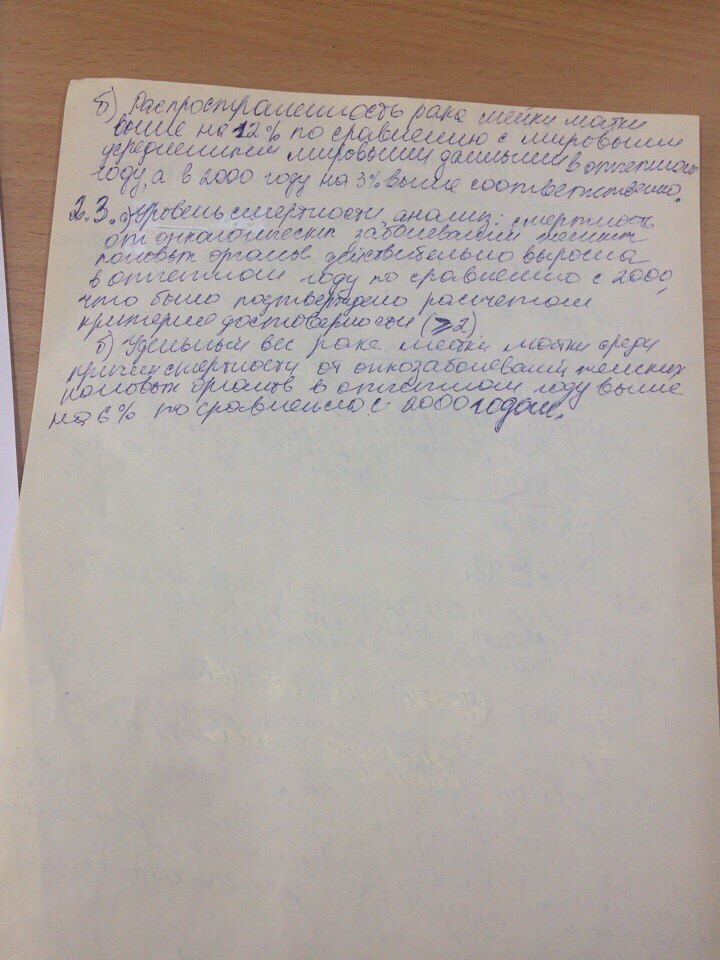 б) Распространенность рака шейки матки
выше на 12% по сравнению с мировыми
усредненными мировыми данными в отчетном
году, а в 2000 году на 3% выше соответственно.
2.3. а) Уровень смертности, анализ: смертность
от онкологических заболеваний женских
половых органов действительно выросла
в отчетном году по сравнению с 2000,
что было подтверждено расчетом
критерия достоверности (⩾2)
б) Удельный вес рака шейки матки среди
причин смертности от онкозаболеваний женских
половых органов в отчетном году выше
на 6% по сравнению с 2000 годом.